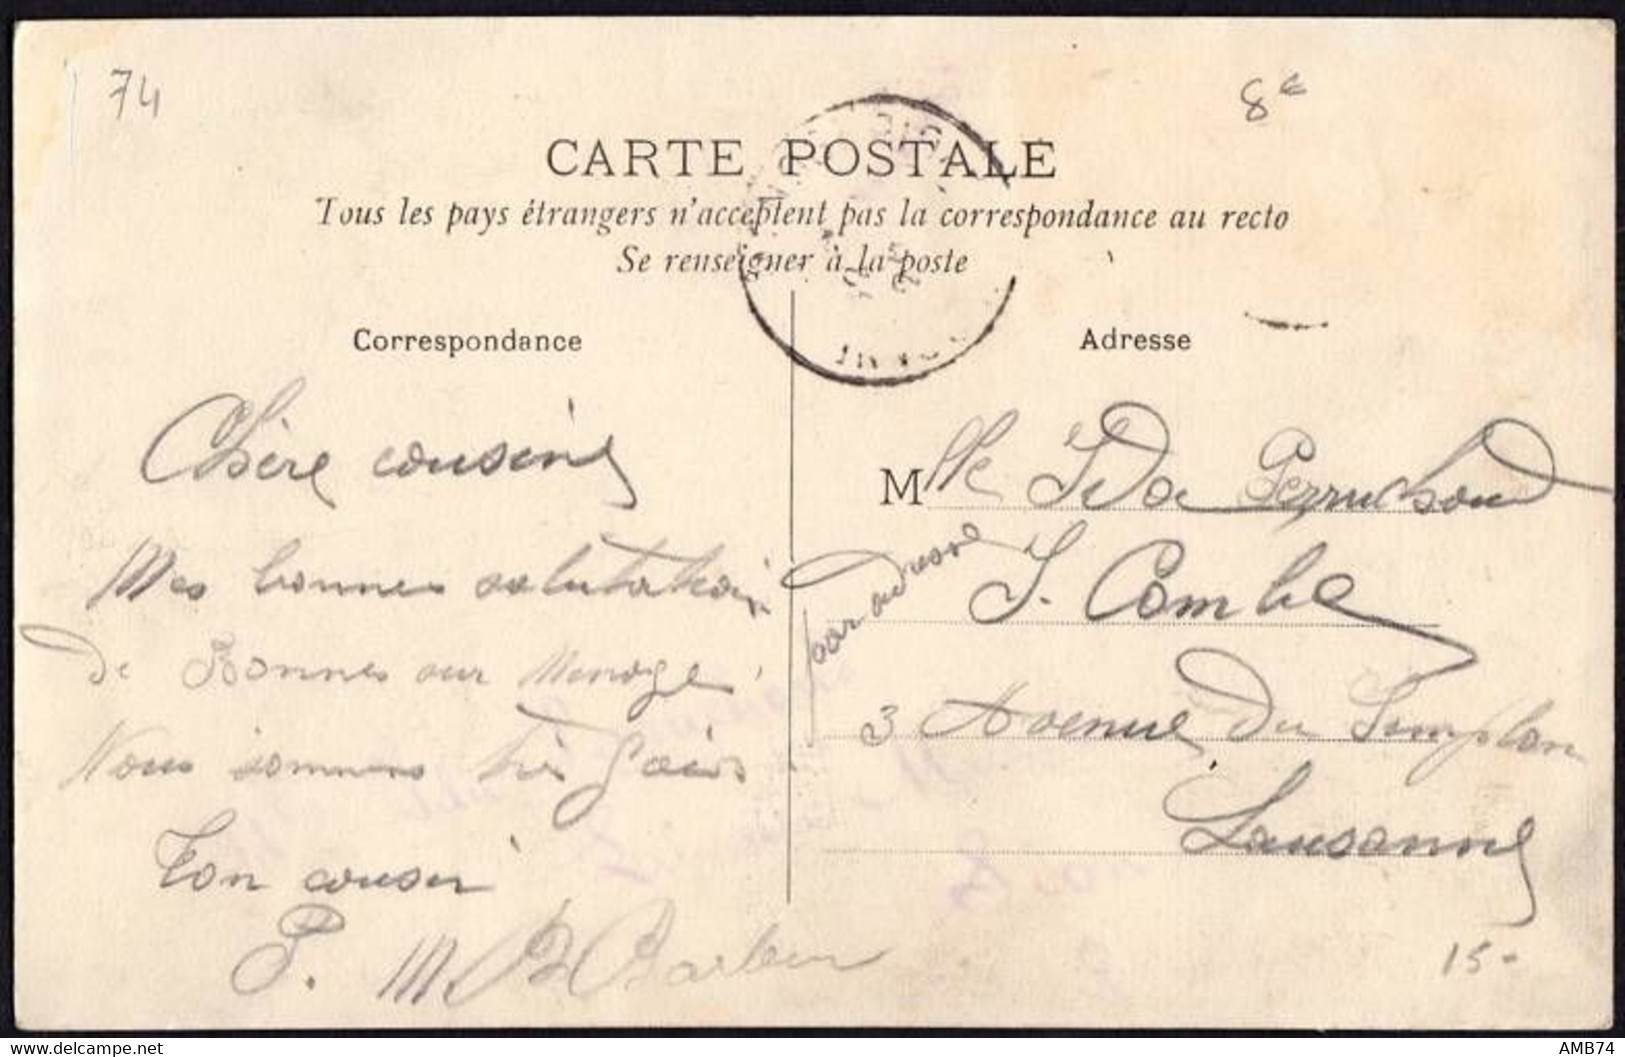 74
8€
CARTE POSTALE
Tous les pays étrangers n'acceptent pas la correspondance au recto
Se renseigner à la poste
Correspondance
Adresse
Chère cousine
Mes bonnes salutations
de Bonnes sur Menoge
Nous sommes très
Ton cousin
P. M
Mlle Ida Perruchoud
par adresse
J. Combe
3 Avenue du Simplon
Lausanne
15-
AMB74